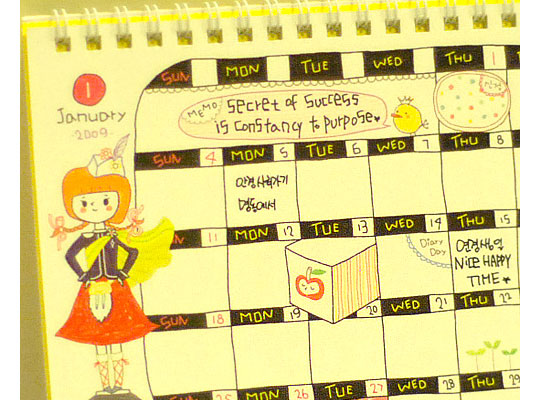 SUN MON TUE WED THU 1
1
January
2009
MEMO
Secret of success
is constancy to purpose♥
SUN 4 MON 5 TUE 6 WED 7 THU 8
안경사러가기
명동에서
SUN 11 MON 12 TUE 13 WED 14 THU 15
Diary
Day
Nice HAPPY
TIME ♥
SUN 18 MON 19 20 WED 21 THU 22
25 MON 26 TUE 27 WED 28 THU 29